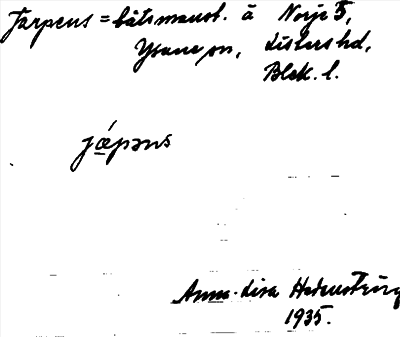 Jarpens = båtsmanst. å Norje 5,
Ysane sn, Listers hd,
Blek. l.
jǽpəns
Anna-Lisa Hedenstierna
1935.